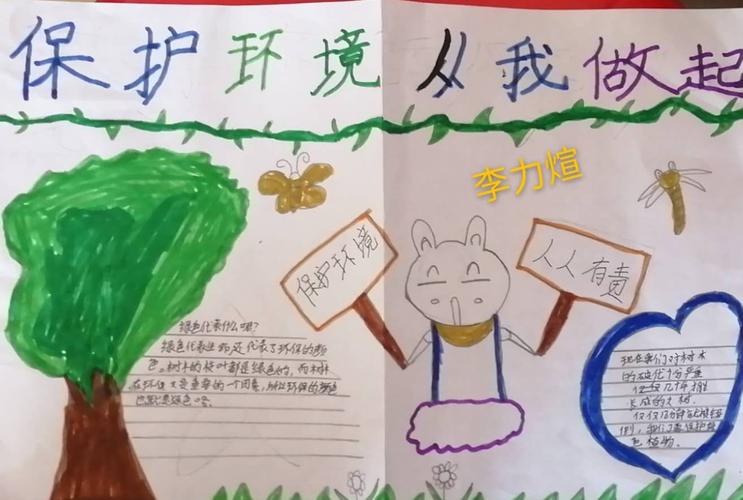 保护环境从我做起
李力煊
保护环境
人人有责
绿色代表什么呢?
绿色代表生物,还代表了环保的颜
色。树木的枝叶都是绿色的,而树林
在环保大是重要的一个因素,所以环保的颜色
也就是绿色咯。
现在我们对树木
的破坏十分严重
仅仅几千棵
长成的大树
仅仅
倒,我们要保护绿
色植物。